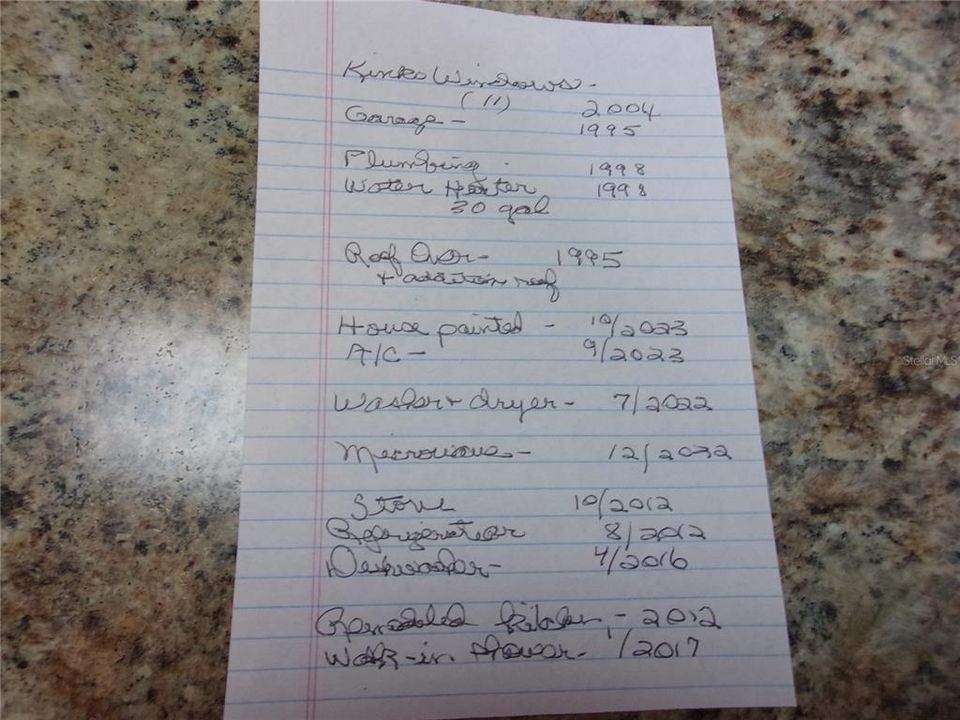 Kinko Windows -
(11) 2004
Garage - 1995
Plumbing - 1998
Water Heater 1998
30 gal
Roof Over - 1995
+ addition roof
House painted - 10/2023
A/C - 9/2023
Washer + dryer - 7/2022
Microwave - 12/2032
Stove 10/2012
Refrigerator 8/2012
Dishwasher - 4/2016
Remodeled kitchen, - 2012
Walk-in Shower - 1/2017
StellarMLS